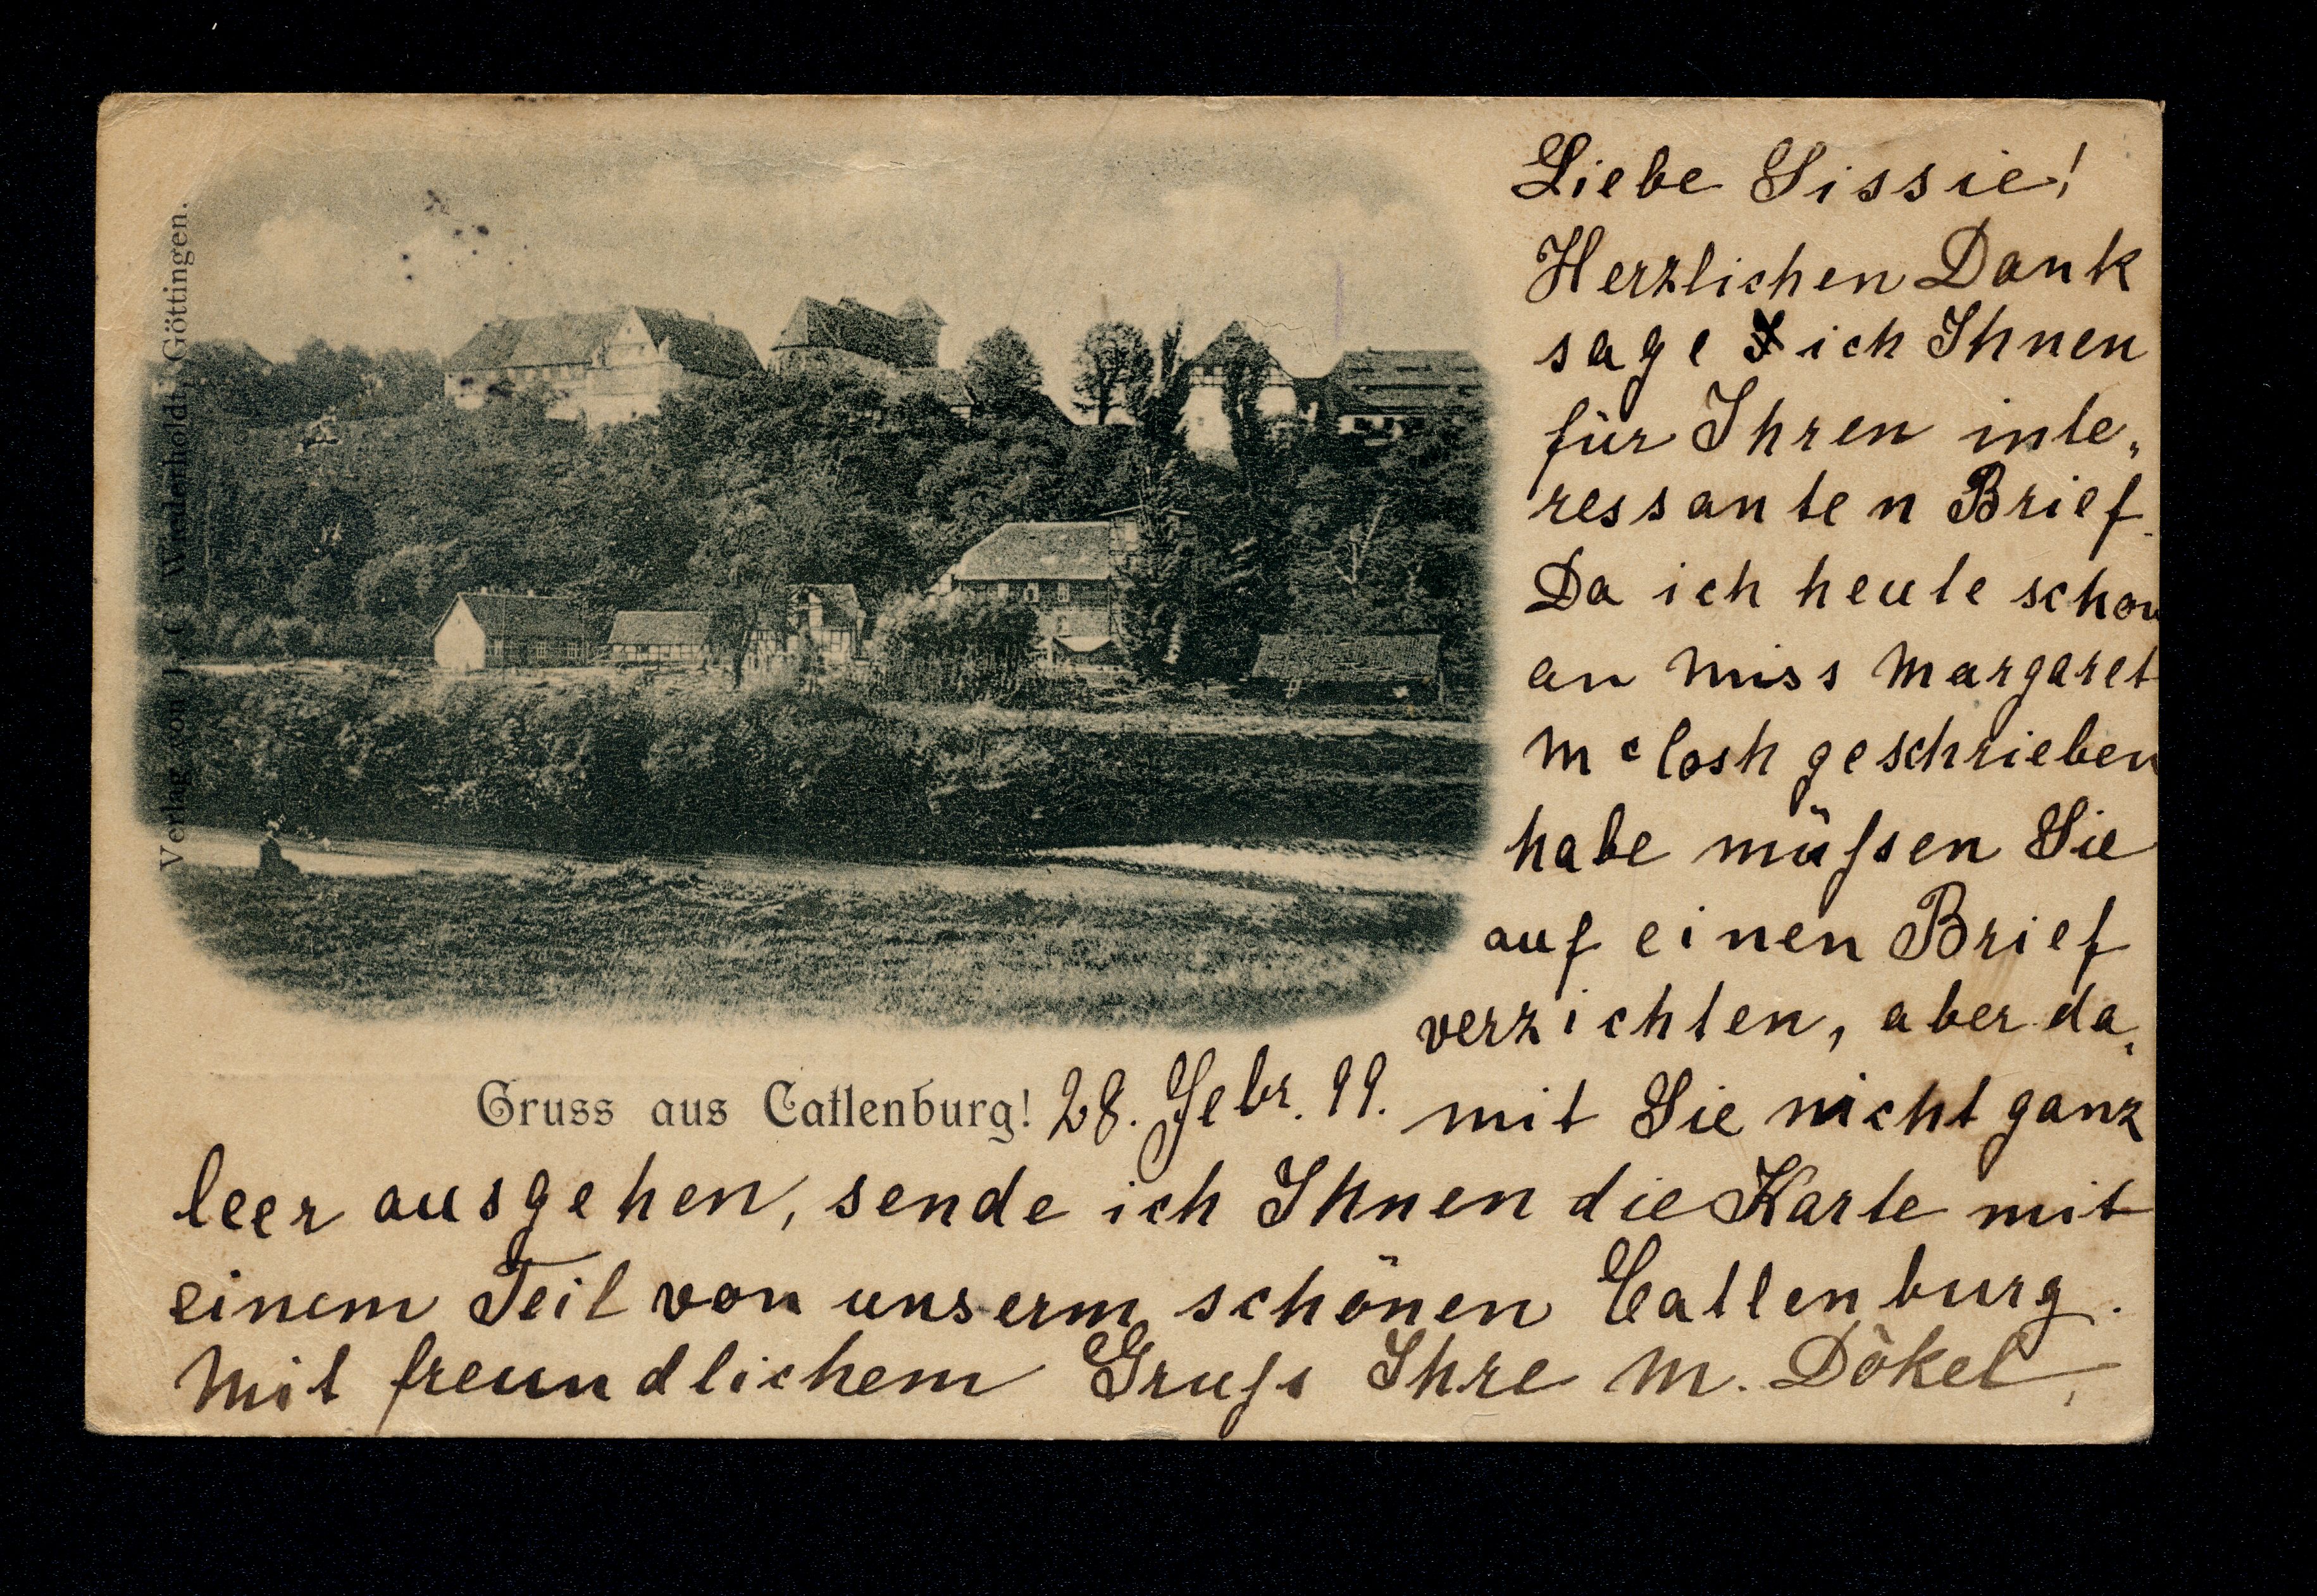 Verlag von J. C. Wiederholdt, Göttingen.
Liebe Sissie!
Herzlichen Dank
sage ich Ihnen
für Ihren inte„
ressanten Brief.
Da ich heute schon
an Miss Margaret
geschrieben
habe müſsen Sie
auf einen Brief
verzichten, aber da„
Gruss aus Catlenburg! 28. Febr. 99. mit Sie nicht ganz
leer ausgehen, sende ich Ihnen die Karte mit
einem Teil von unserm schönen Catlenburg.
Mit freundlichem Gruſs Ihre M. Dökel,